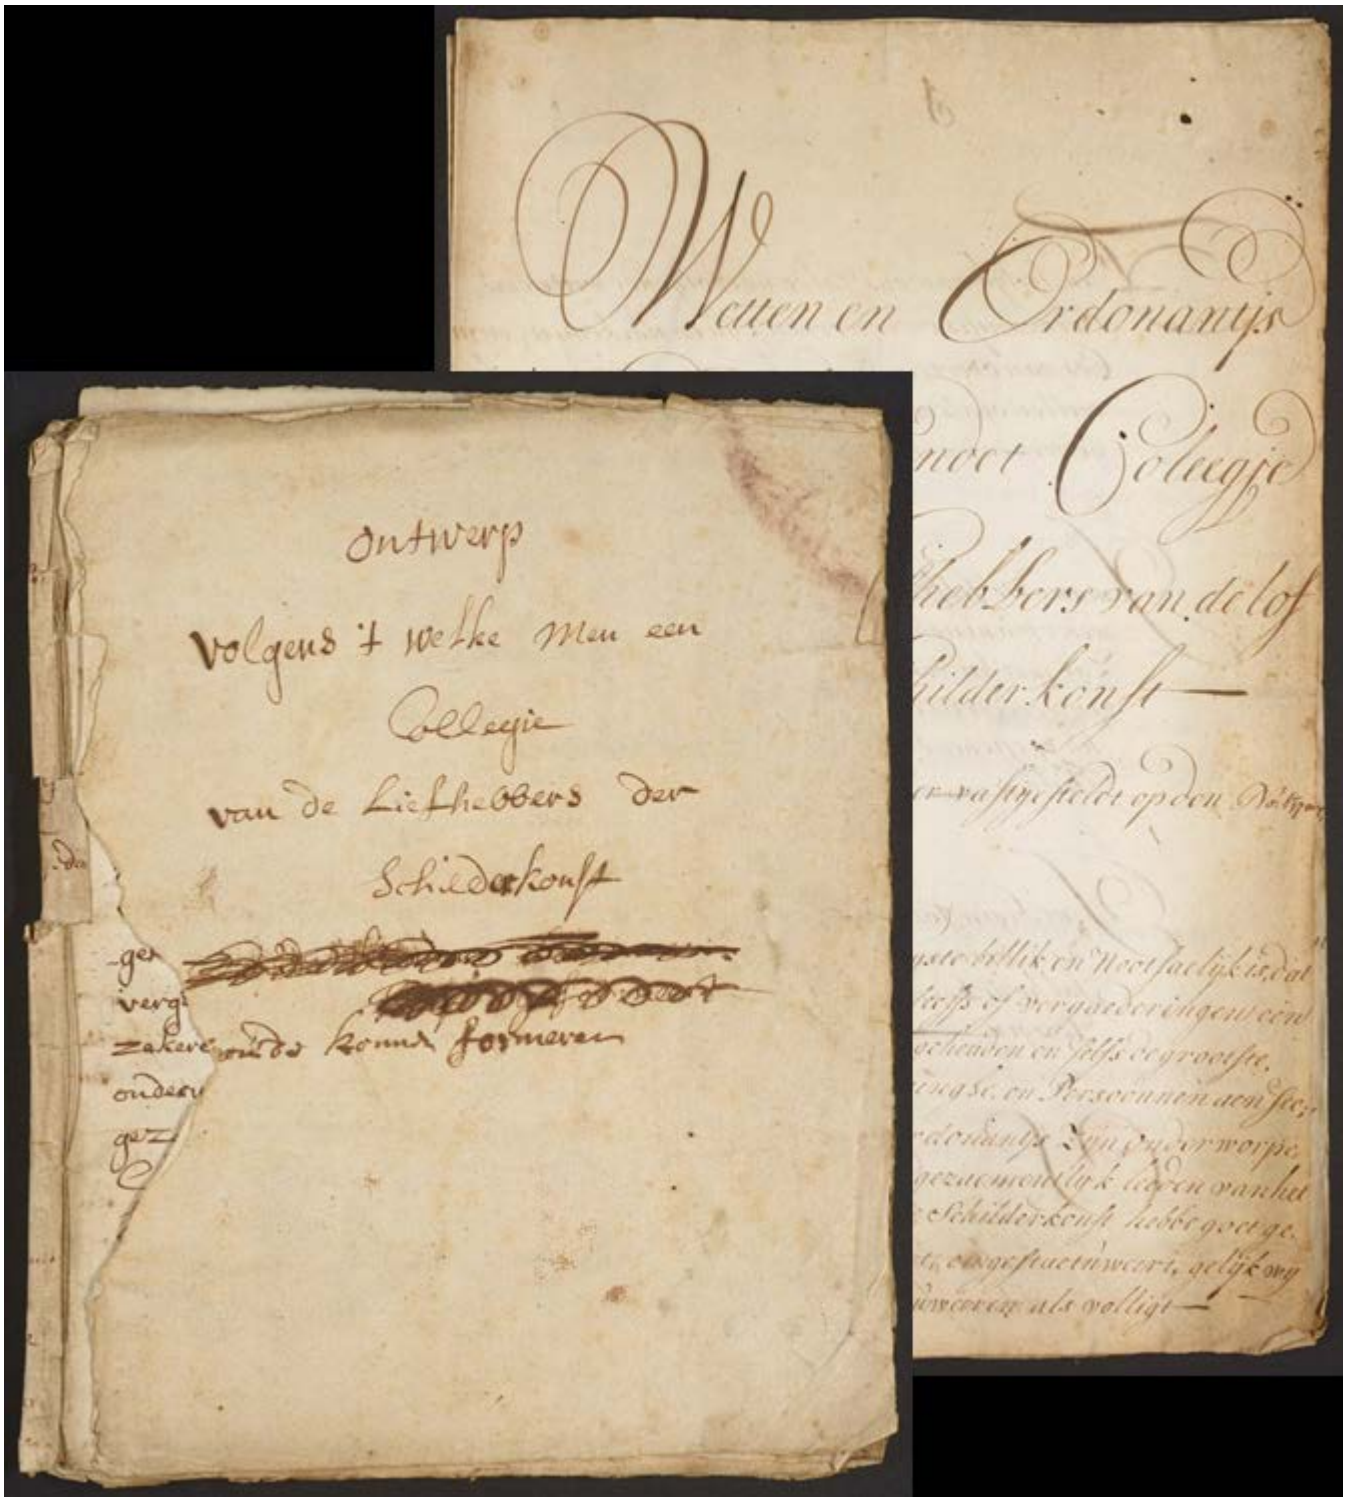 Wetten en Ordonantys
noot Coleegje
hebbers van de lof
hilderkonst
er vastgesteldt op den
ste billik en Nootsaelijk is, dat
of vergaederingen een
gehouden en selfs de grootste,
en Persoonnen aen see,
rdonantys zijn onderworpe,
gezaementlijk leeden van het
Schilderkonst hebbe goet ge,
gelijk wy
als volligt
ontwerp
volgens 't welke Men een
Collegie
van de Liefhebbers der
Schilderkonst
ger
verg
zekere oude konne formeren
onder
gez